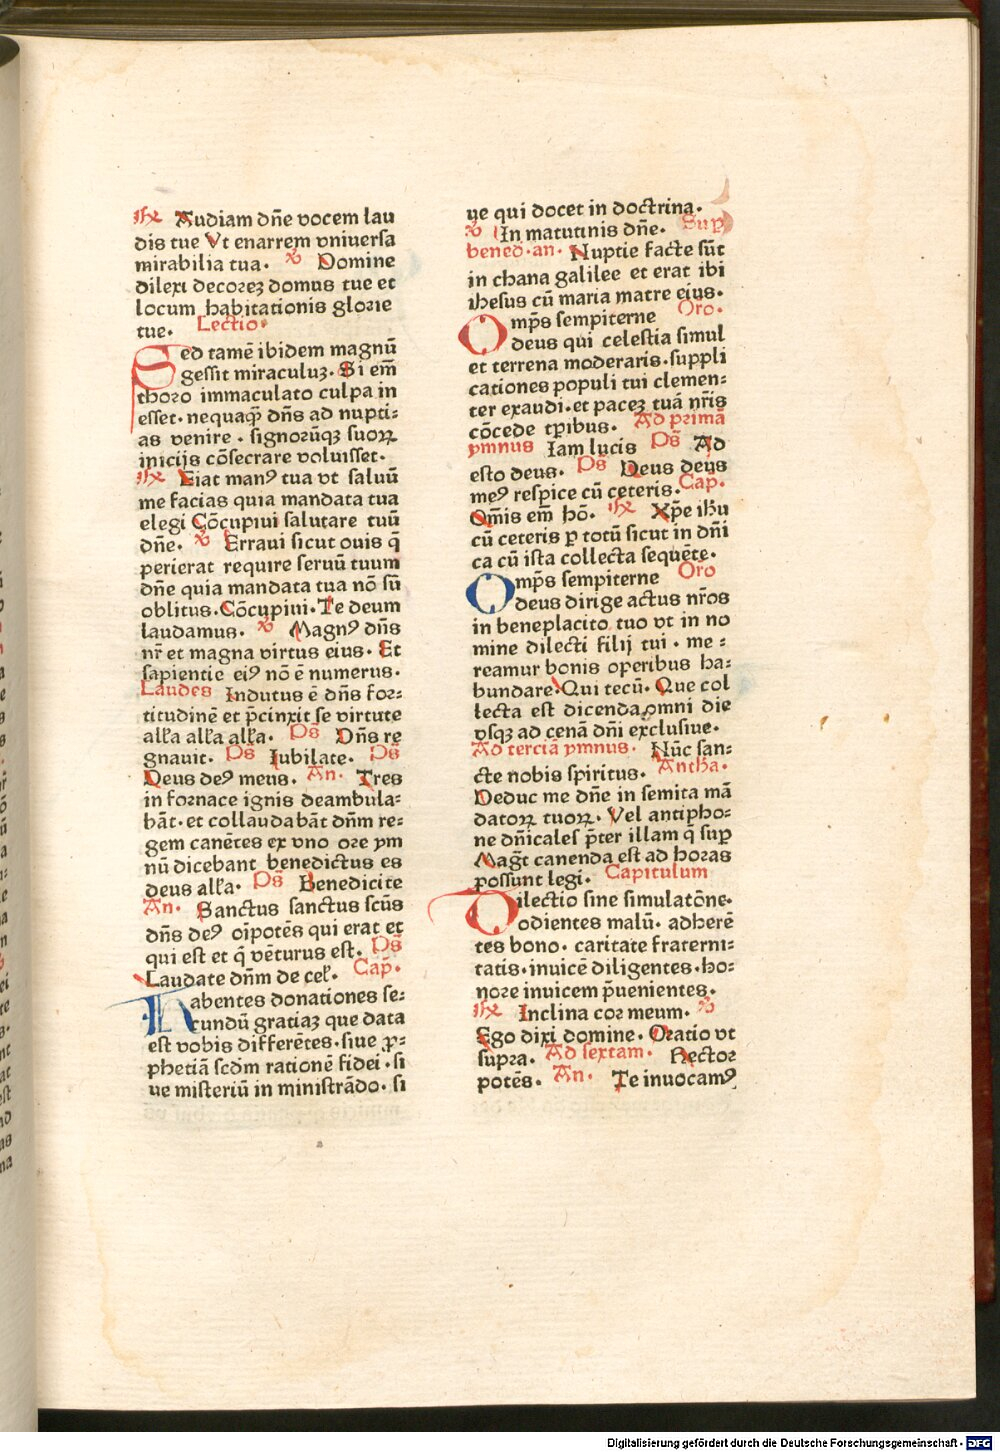 ℟ Audiam dñe vocem lau
dis tue Vt enarrem vniuersa
mirabilia tua. ℣ Domine
dilexi decoreꝫ domus tue et
locum habitationis glorie
tue. Lectio.
Sed tamẽ ibidem magnũ
gessit miraculuꝫ. Si em̃
thoro immaculato culpa in
esset. nequaq̃ dñs ad nupti⸗
as venire. signorũqꝫ suoꝝ
inicijs cõsecrare voluisset.
℟ Fiat manꝰ tua vt saluũ
me facias quia mandata tua
elegi Cõcupiui salutare tuũ
dñe. ℣ Erraui sicut ouis q̃
perierat require seruũ tuum
dñe quia mandata tua nõ sũ
oblitus. Cõcupiui. Te deum
laudamus. ℣ Magnꝰ dñs
nr̃ et magna virtus eius. Et
sapientie eiꝰ nõ ẽ numerus.
Laudes Indutus ẽ dñs for⸗
titudinẽ et p̃cinxit se virtute
alła alła alła. Ps̃ Dñs re
gnauit. Ps̃ Iubilate. Ps̃
Deus deꝰ meus. An. Tres
in fornace ignis deambula⸗
bãt. et collaudabãt dñm re⸗
gem canẽtes ex vno ore ym
nũ dicebant benedictus es
deus alła. Ps̃ Benedicite
An. Sanctus sanctus scũs
dñs deꝰ oĩpotẽs qui erat et
qui est et q̃ vẽturus est. Ps̃
Laudate dñm de cel̃. Cap̃.
Habentes donationes se⸗
cundũ gratiaꝫ que data
est vobis differẽtes. siue ꝓ⸗
phetiã scdm rationẽ fidei. si
ue misteriũ in ministrãdo. si
ue qui docet in doctrina.
℣ In matutinis dñe. Sup̃
bened. an. Nuptie facte sũt
in chana galilee et erat ibi
ihesus cũ maria matre eius.
Omp̃s sempiterne Oro.
deus qui celestia simul
et terrena moderaris. suppli
cationes populi tui clemen⸗
ter exaudi. et paceꝫ tuã nr̃is
cõcede tp̃ibus. Ad primã
ymnus Iam lucis Ps̃ Ad
esto deus. Ps̃ Deus deus
meꝰ respice cũ ceteris. Cap̃.
Om̃is em̃ hõ. ℟ Xp̃e ihũ
cũ ceteris ꝑ totũ sicut in dñi
ca cũ ista collecta sequẽte.
Omp̃s sempiterne Oro
deus dirige actus nr̃os
in beneplacito tuo vt in no
mine dilecti filij tui. me⸗
reamur bonis operibus ha⸗
bundare. Qui tecũ. Que col
lecta est dicenda omni die
vsqꝫ ad cenã dñi exclusiue.
Ad terciã ymnus. Nũc san⸗
cte nobis spiritus. Antħa.
Deduc me dñe in semita mã
datoꝝ tuoꝝ. Vel antipho⸗
ne dñicales p̃ter illam q̃ sup̃
Mag̃t canenda est ad horas
possunt legi. Capitulum
Dilectio sine simulatõne.
odientes malũ. adherẽ
tes bono. caritate fraterni⸗
tatis. inuicẽ diligentes. ho⸗
nore inuicem p̃uenientes.
℟ Inclina cor meum. ℣
Ego dixi domine. Oratio vt
supra. Ad sextam. Rector
potẽs. An. Te inuocamꝰ
Digitalisierung gefördert durch die Deutsche Forschungsgemeinschaft - DFG